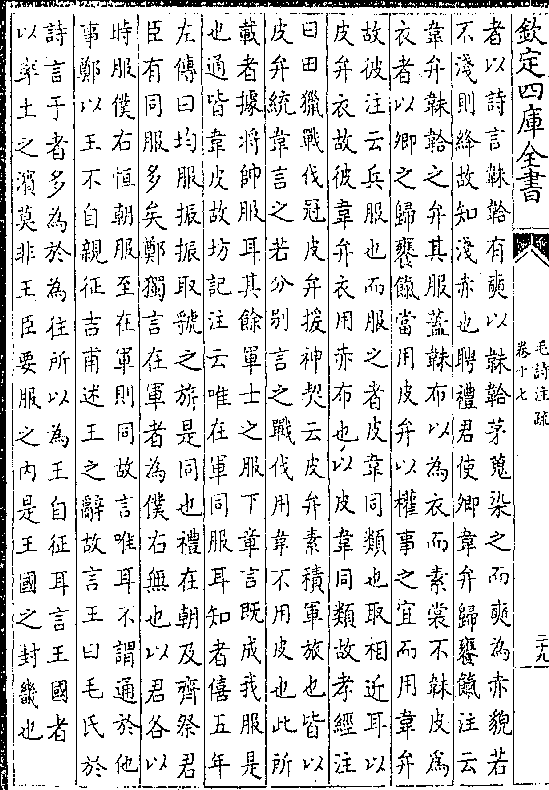 欽定四庫全書
毛詩注疏
卷十七
二十九
者以詩言韎韐有奭以韎韐茅蒐染之而奭為赤貌若
不淺則絳故知淺赤也聘禮君使卿韋弁歸饔餼注云
韋弁韎韐之弁其服蓋韎布以為衣而素裳不韎皮為
衣者以卿之歸饔餼當用皮弁以權事之宜而用韋弁
故彼注云兵服也而服之者皮韋同類也取相近耳以
皮弁衣故彼韋弁衣用赤布也以皮韋同類故孝經注
曰田獵戰伐冠皮弁援神契云皮弁素積軍旅也皆以
皮弁統韋言之若分别言之戰伐用韋不用皮也此所
載者據將帥服耳其餘軍士之服下章言既成我服是
也通皆韋皮故坊記注云唯在軍同服耳知者僖五年
左傳曰均服振振取虢之旂是同也禮在朝及齊祭君
臣有同服多矣鄭獨言在軍者為僕右無也以君各以
時服僕右恒朝服至在軍則同故言唯耳不謂通於他
事鄭以王不自親征吉甫述王之辭故言王曰毛氏於
詩言于者多為於為往所以為王自征耳言王國者
以率土之濱莫非王臣要服之内是王國之封畿也